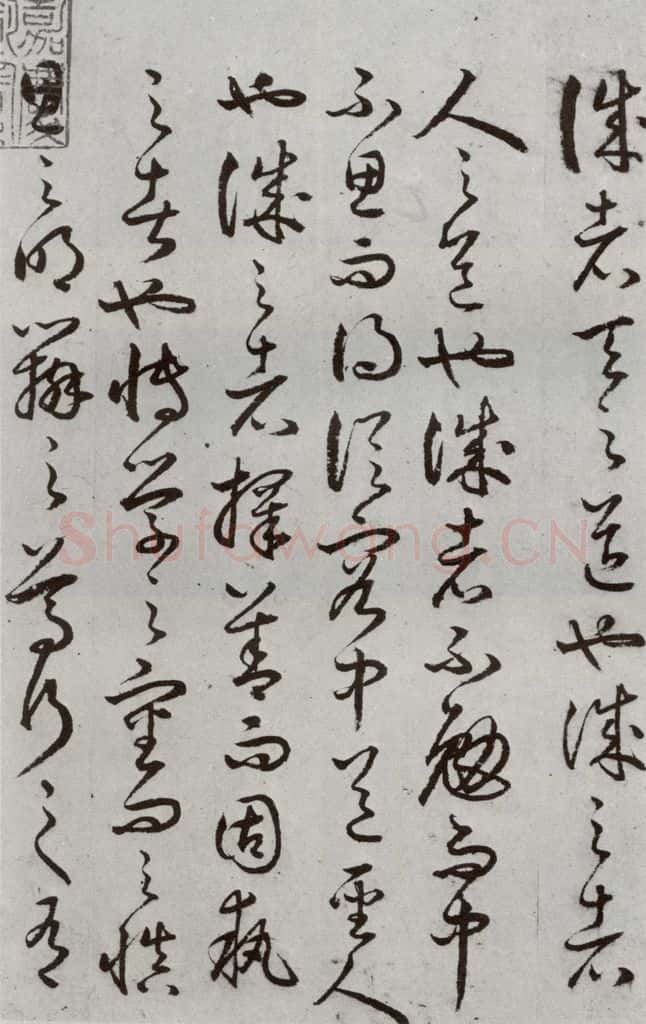 誠者天之道也誠之者
人之道也誠者不勉而中
不思而得從容中道聖人
也誠之者擇善而固執
之者也博學之審問之慎
思之明辨之篤行之有
Shufawang.CN